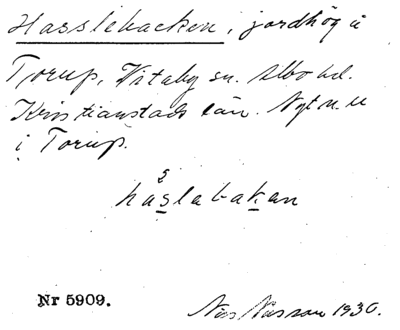 Hasslebacken, jordhög å
Torup, Vitaby sn. Albo hd.
Kristianstads län. Nytn. u
i Torup.
håslabakan
Nr 5909.
Nils Nilsson 1930.